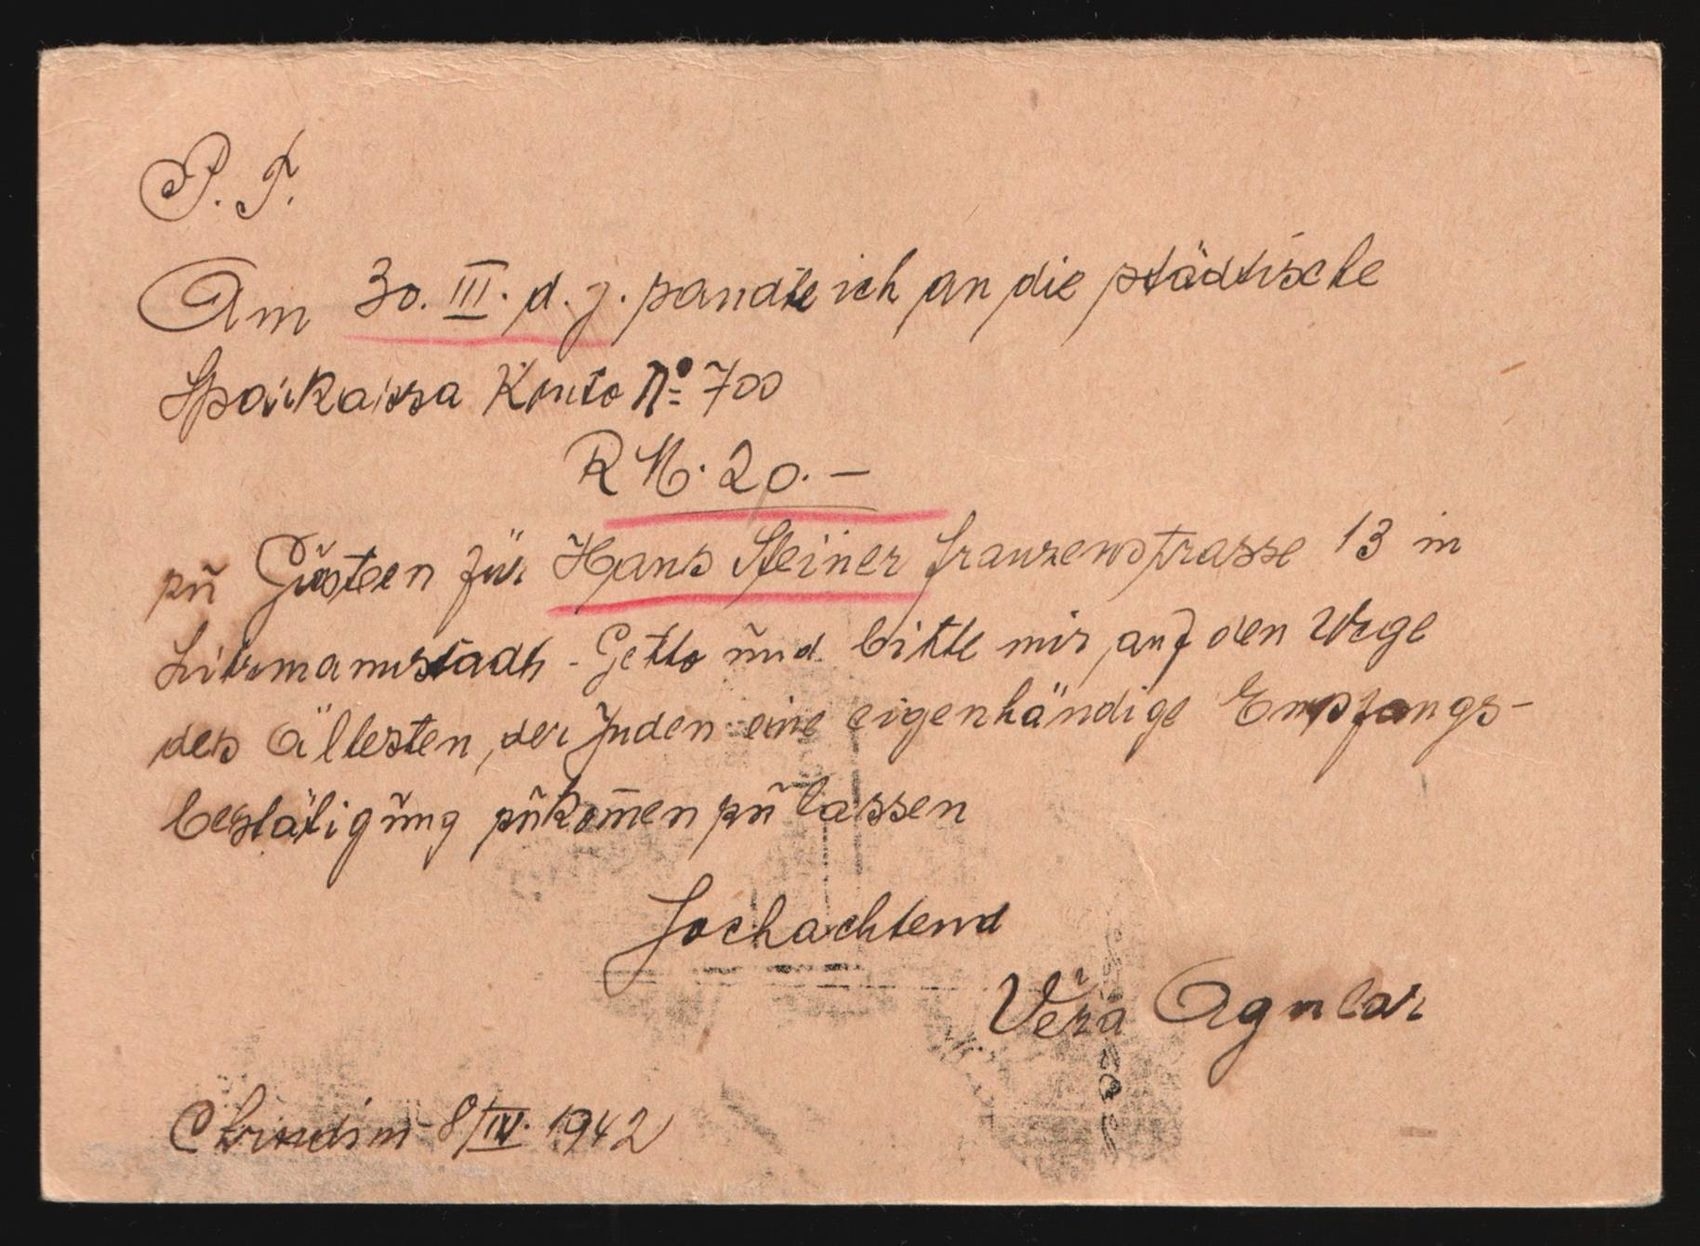 P. T.
Am 30. III. d. J. sandte ich an die städtische
Sparkassa Konto No 700
RM. 20.—
zu Gunsten für Hans Steiner Franzenstrasse 13 in
Litzmannstadt - Getto und bitte mir auf den Wege
des Ältesten der Juden eine eigenhändige Empfangs-
bestätigung zukom̄en zu lassen
Hochachtend
Věra
8/IV. 1942